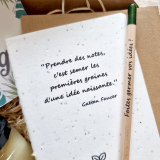 "Prendre des notes,
c'est semer les
premières graines
d'une idée naissante."
Gaëtan Faucer
Faites germer vos idées !